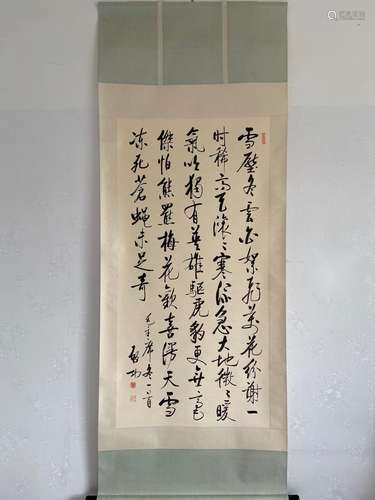 雪壓冬雲白絮飛萬花紛謝一
时稀高天滚々寒流急大地微々暖
氣吹獨有英雄驅虎豹更無豪
傑怕熊羆梅花歡喜漫天雪
凍死蒼蠅未足奇
毛主席一首
啟功